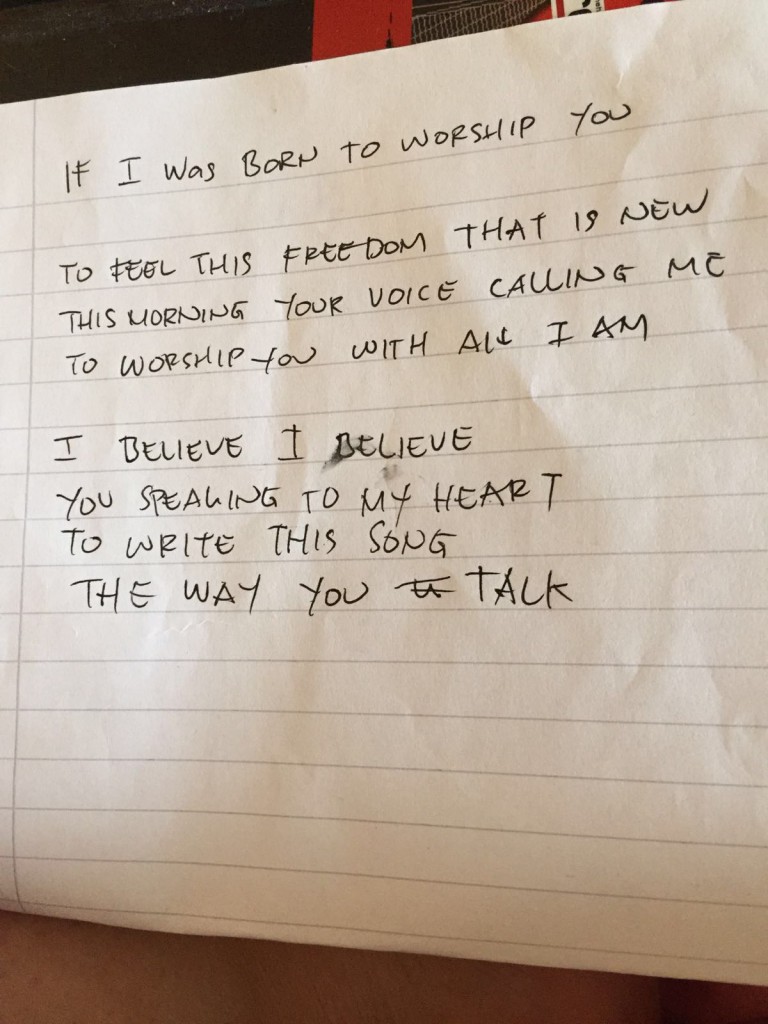 IF I WAS BORN TO WORSHIP YOU
TO FEEL THIS FREEDOM THAT IS NEW
THIS MORNING YOUR VOICE CALLING ME
TO WORSHIP YOU WITH ALL I AM
I BELIEVE I BELIEVE
YOU SPEAKING TO MY HEART
TO WRITE THIS SONG
THE WAY YOU TALK